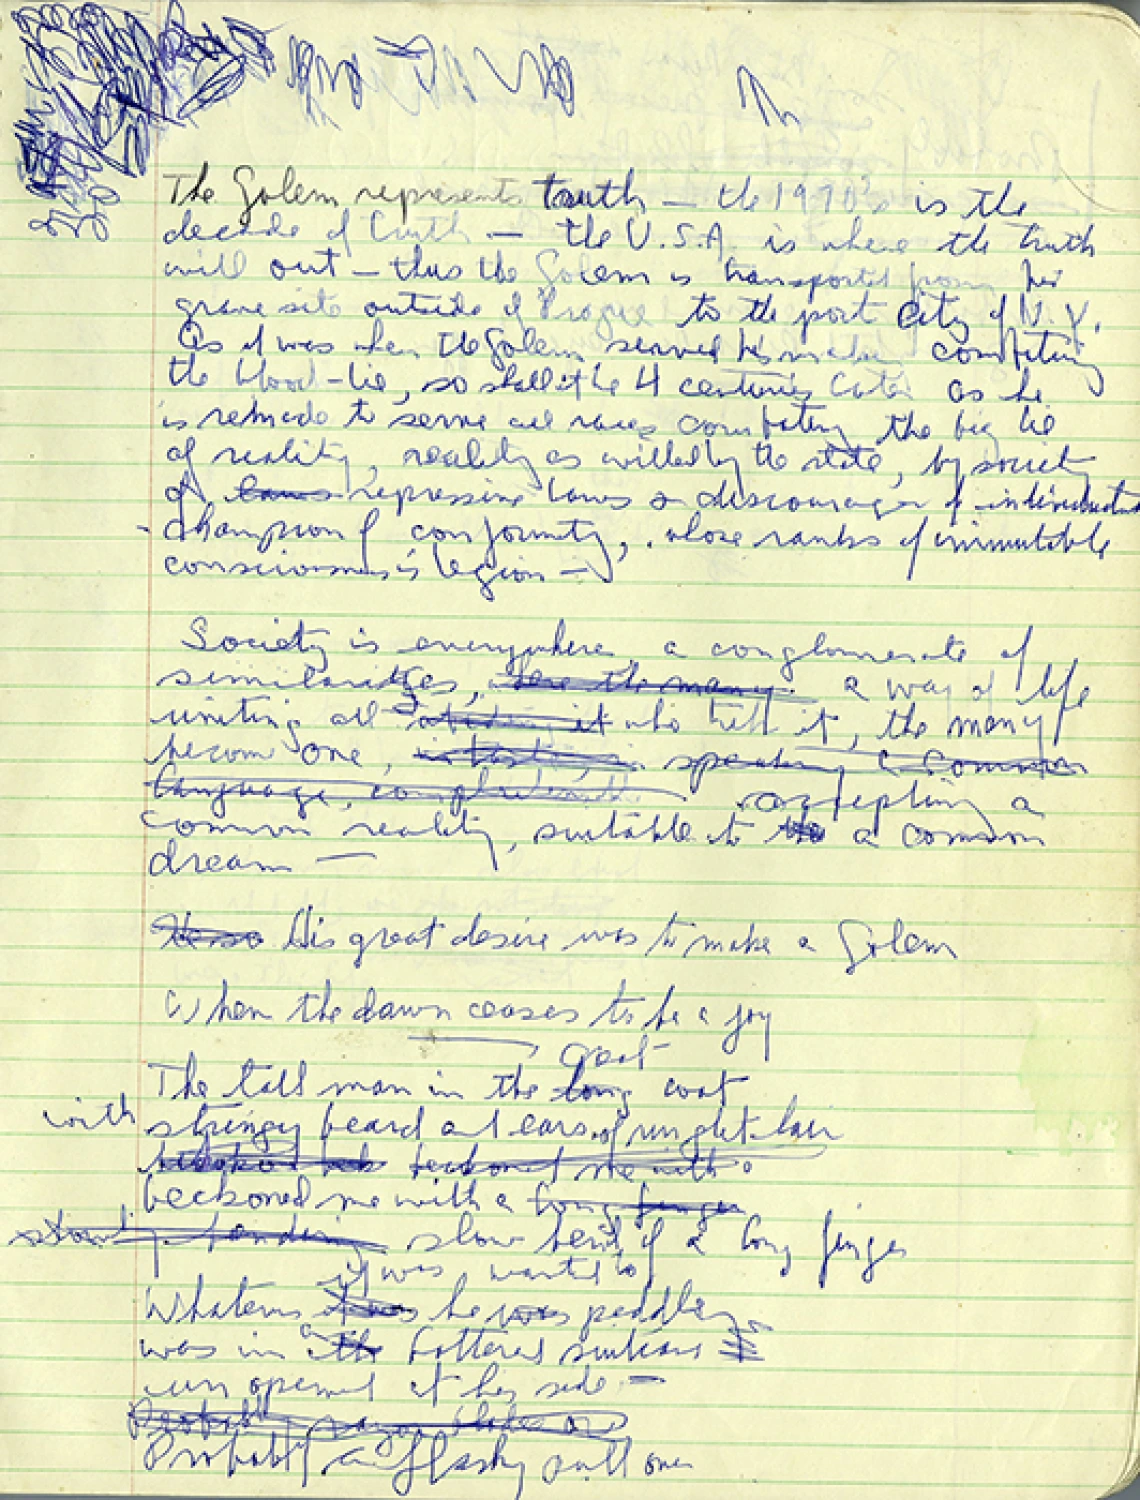 The Golem represents truth — the 1970's is the
decade of truth — the U.S.A. is where the truth
will out — thus the Golem is transported from his
grave site outside of Prague to the port city of N.Y.
As it was when the Golem served his maker combating
the blood-lie, so shall it be 4 centuries later as he
is remade to serve all races combating the big lie
of reality, reality as willed by the state, by society
of laws repressive laws discourager of
champion of conformity, whose ranks of immutable
consciousness is legion —
Society is everywhere a conglomerate of
similarities, where the many a way of life
uniting all it who tell it, the many
become one, speaking a common
language, accepting a
common reality, suitable to a common
dream —
His great desire was to make a Golem
When the dawn ceases to be a joy
great
The tall man in the long coat
with stringy beard and ears of ringlet hair
beckoned me with
beckoned me with a long finger
slow bend of a long finger
it was wanted to
Whatever he was peddle
was in a the battered suitcase
unopened at his side —
Probably razor blades or
Probably a flashy pull over